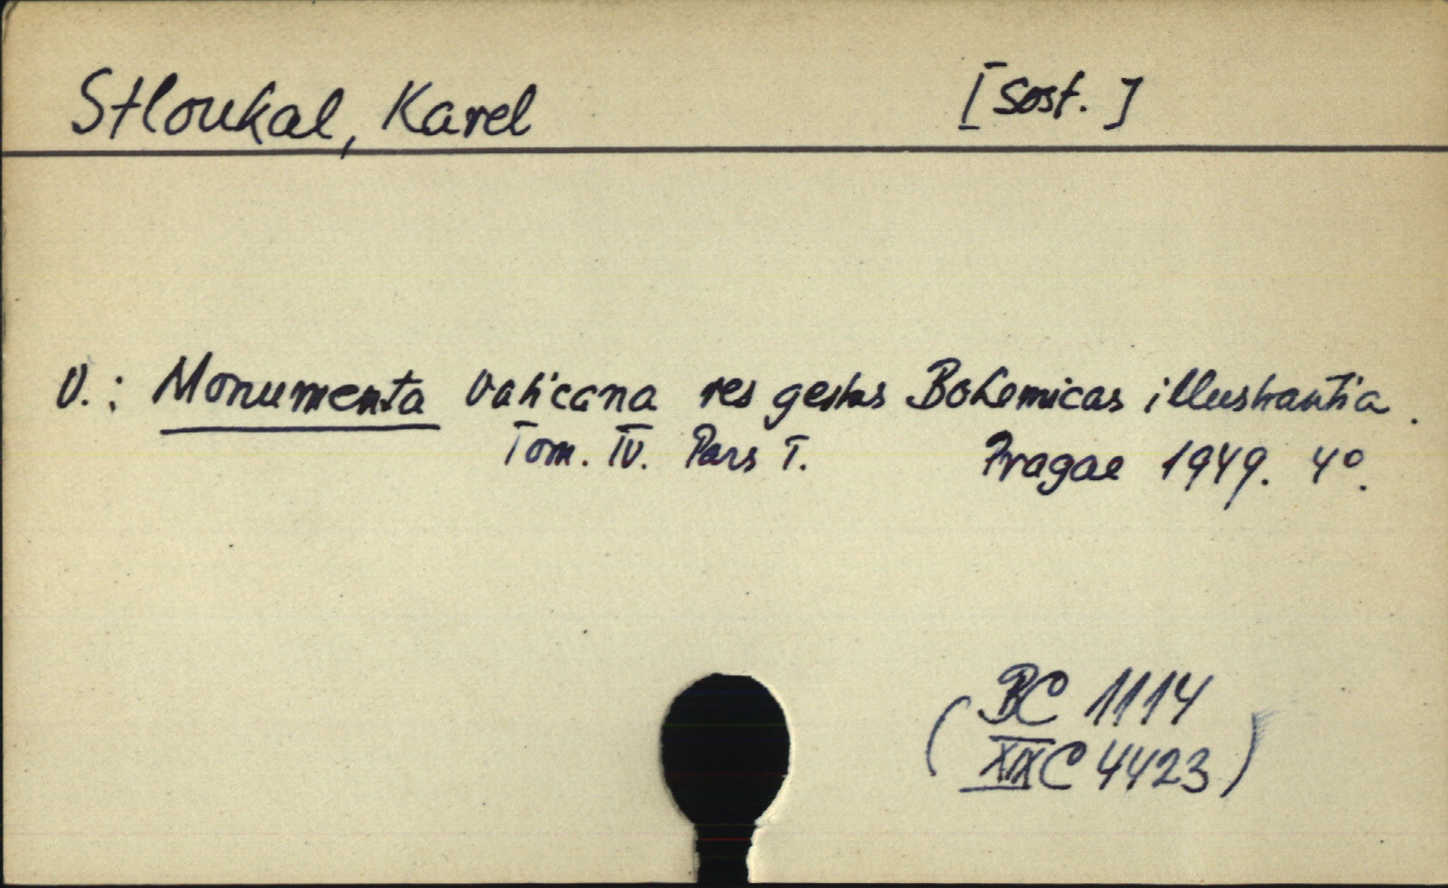 Stloukal, Karel [sost.]
V.: Monumenta Vaticana res gestas Bohemicas illustrantia.
Tom. IV. Pars I. Pragae 1949. 4°.
(BC 1114
XIX C 4423)